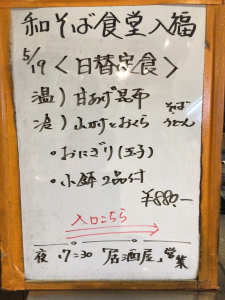 和そば食堂入福
5/19<日替定食>
温)甘あげ昆布
冷)山かけとおくら
そば
うどん
・おにぎり(玉子)
・小鉢2品付
¥880.-
入口こちら
夜、17:30「居酒屋」営業